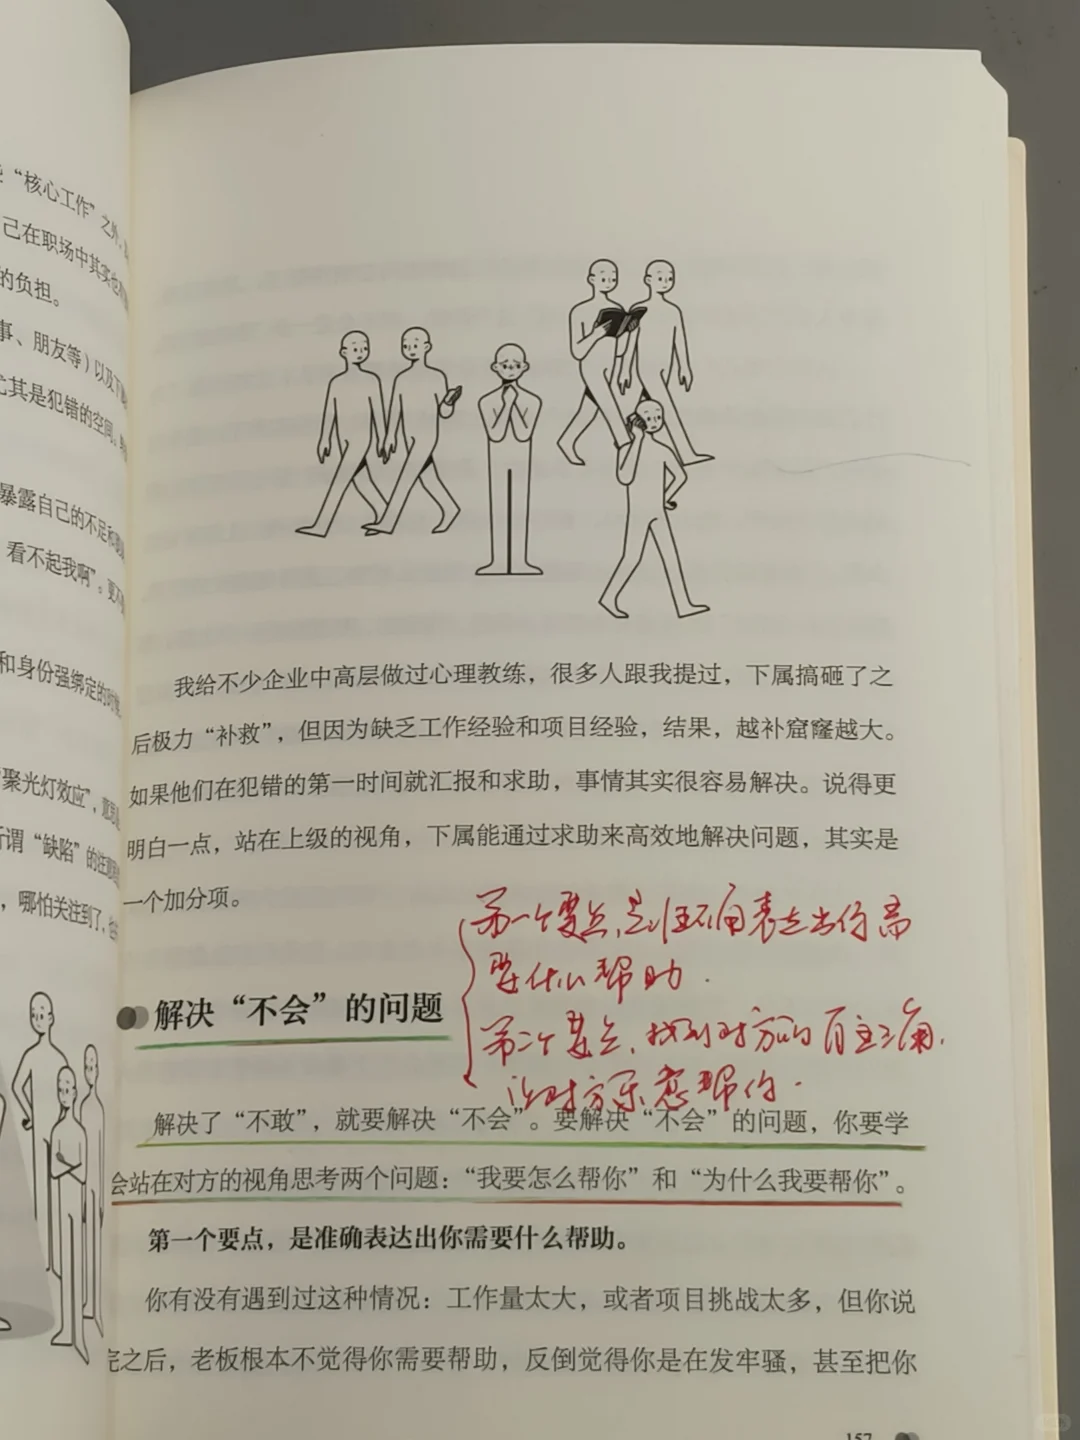 些“核心工作”之外，
己在职场中其实也
的负担。
事、朋友等）以及下
尤其是犯错的空间。
暴露自己的不足和
看不起我啊”。更不
和身份强绑定的时候，
“聚光灯效应”，意思是
所谓“缺陷”的注意
，哪怕关注到了，也
我给不少企业中高层做过心理教练，很多人跟我提过，下属搞砸了之
后极力“补救”，但因为缺乏工作经验和项目经验，结果，越补窟窿越大。
如果他们在犯错的第一时间就汇报和求助，事情其实很容易解决。说得更
明白一点，站在上级的视角，下属能通过求助来高效地解决问题，其实是
一个加分项。
第一个要点，是准确表达出你需
要什么帮助．
解决“不会”的问题
第二个要点，找到对方的自主三角，
让对方乐意帮你．
解决了“不敢”，就要解决“不会”。要解决“不会”的问题，你要学
会站在对方的视角思考两个问题：“我要怎么帮你”和“为什么我要帮你”。
第一个要点，是准确表达出你需要什么帮助。
你有没有遇到过这种情况：工作量太大，或者项目挑战太多，但你说
完之后，老板根本不觉得你需要帮助，反倒觉得你是在发牢骚，甚至把你
157